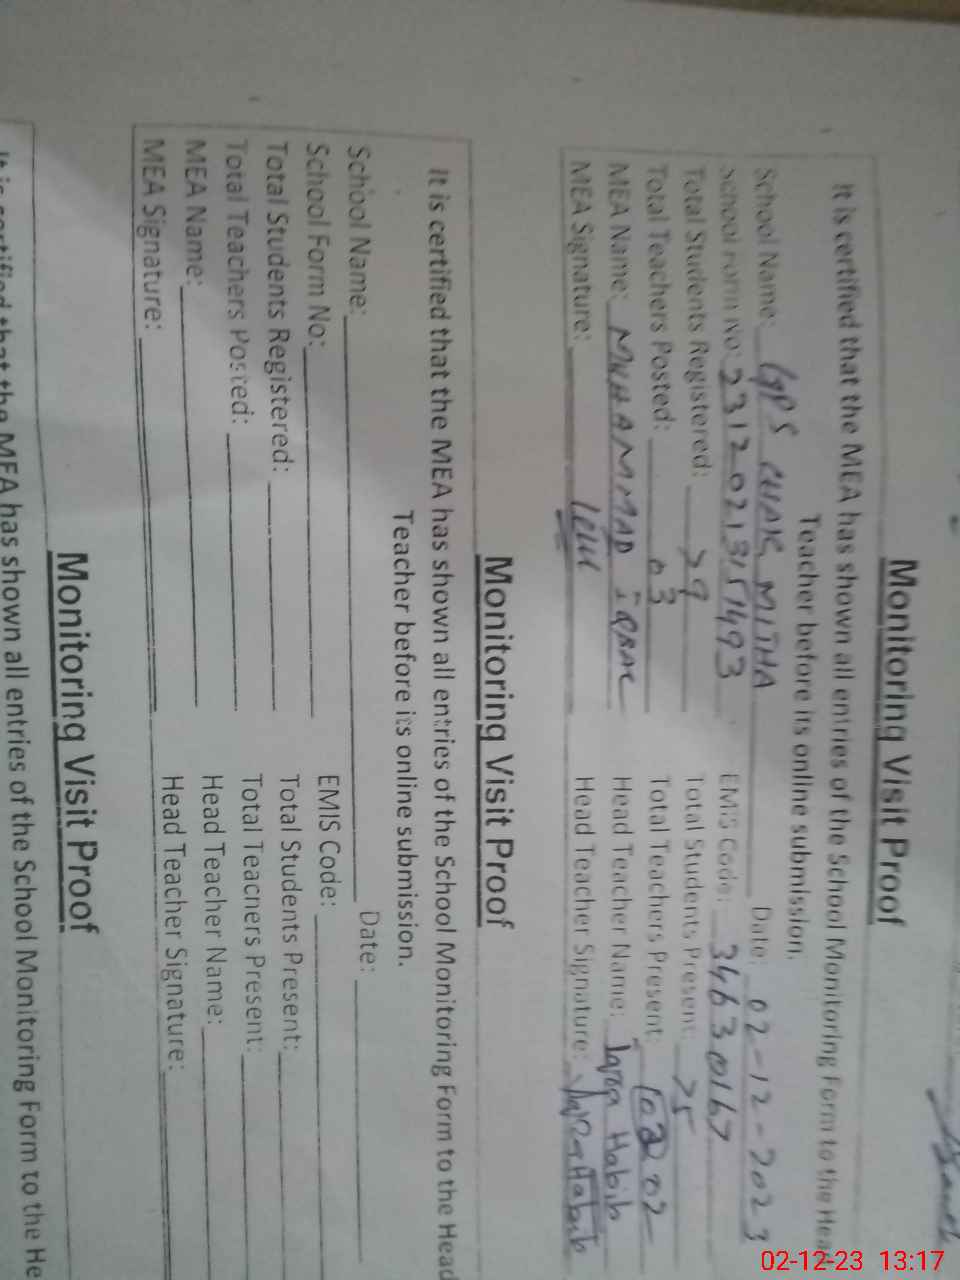 Monitoring Visit Proof
It is certified that the MEA has shown all entries of the School Monitoring Form to the Head
Teacher before its online submission.
School Name: GPS CHAK MITHA Date: 02-12-2023
School Form No: 23120213151493 EMIS Code: 34630167
Total Students Registered: 79 Total Students Present: 75
Total Teachers Posted: 03 Total Teachers Present: 02
MEA Name: MUHAMMAD IQBAL Head Teacher Name: Iqra Habib
MEA Signature: Head Teacher Signature: Iqra Habib
Monitoring Visit Proof
It is certified that the MEA has shown all entries of the School Monitoring Form to the Head
Teacher before its online submission.
School Name: Date:
School Form No: EMIS Code:
Total Students Registered: Total Students Present:
Total Teachers Posted: Total Teachers Present:
MEA Name: Head Teacher Name:
MEA Signature: Head Teacher Signature:
Monitoring Visit Proof
It is certified that the MEA has shown all entries of the School Monitoring Form to the He
02-12-23 13:17